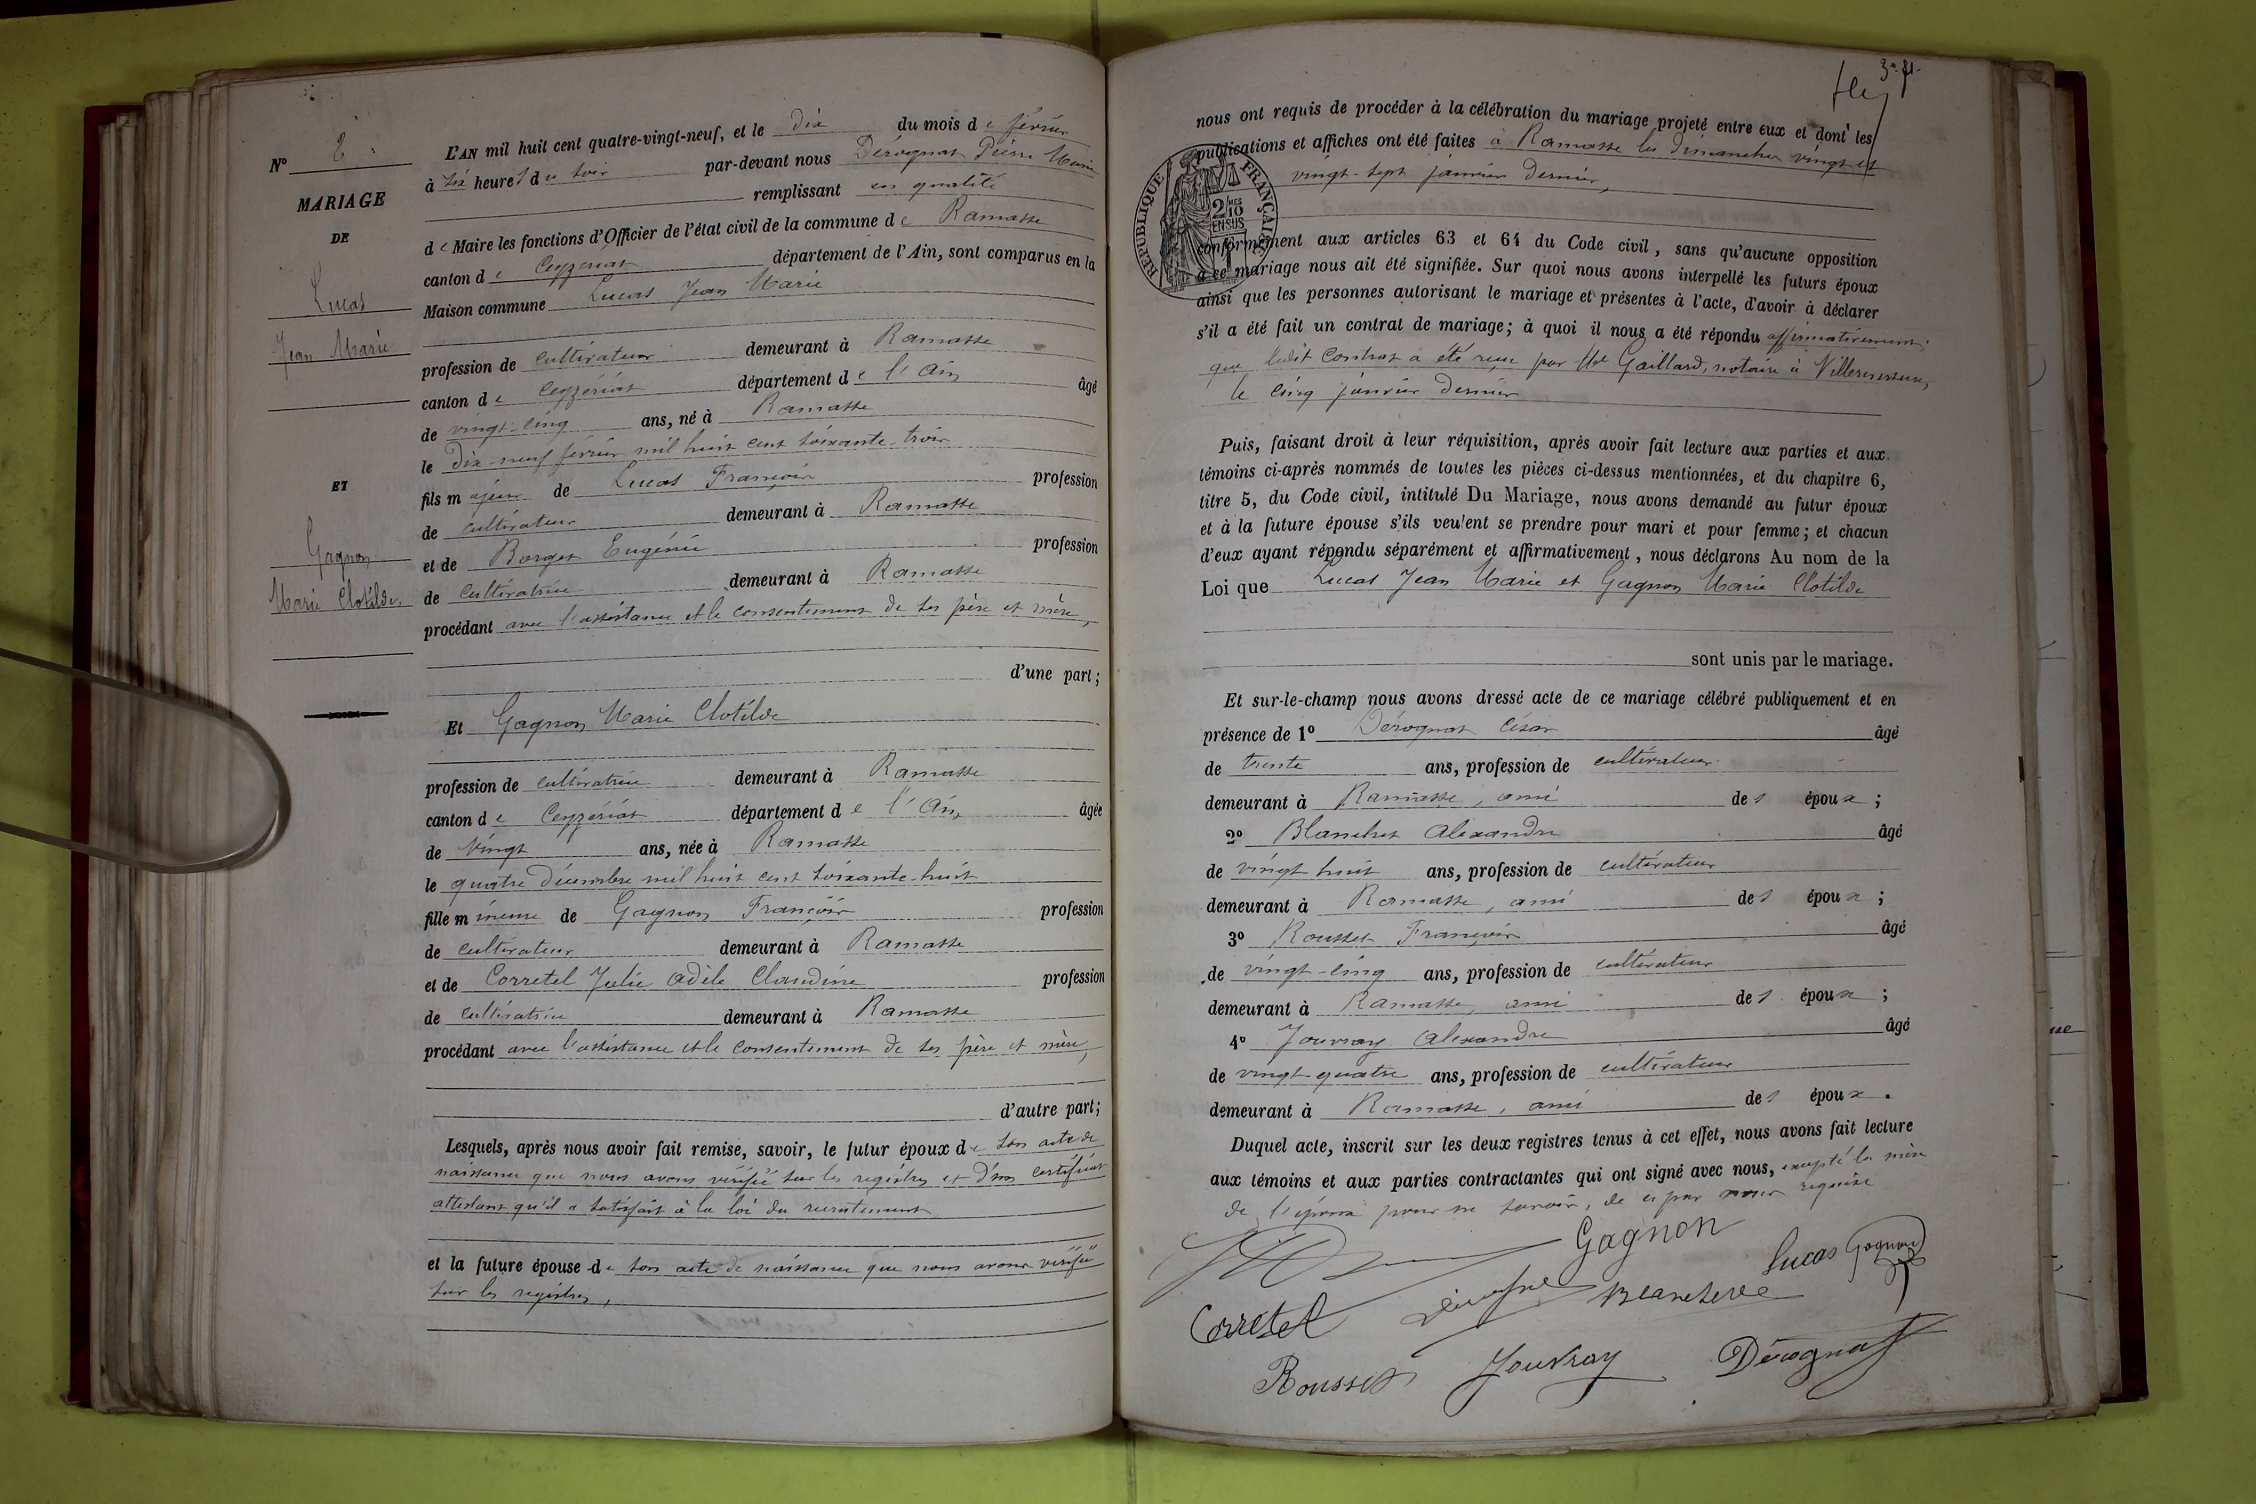 N° 2.
MARIAGE
DE
Lucas
Jean Marie
ET
Gagnon
Marie Clotilde.
L'AN mil huit cent quatre-vingt-neuf, et le dix du mois de février
à six heures du soir par-devant nous Dérognat Pierre Marie
remplissant en qualité
de Maire les fonctions d'Officier de l'état civil de la commune de Ramasse
canton de Ceyzériat département de l'Ain, sont comparus en la
Maison commune Lucas Jean Marie
profession de cultivateur demeurant à Ramasse
canton de Ceyzériat département de l'Ain âgé
de vingt-cinq ans, né à Ramasse
le dix-neuf février mil huit cent soixante-trois
fils majeur de Lucas François profession
de cultivateur demeurant à Ramasse
et de Borget Eugénie profession
de cultivatrice demeurant à Ramasse
procédant avec l'assistance et le consentement de ses père et mère,
d'une part;
Et Gagnon Marie Clotilde
profession de cultivatrice demeurant à Ramasse
canton de Ceyzériat département de l'Ain âgée
de vingt ans, née à Ramasse
le quatre décembre mil huit cent soixante-huit
fille mineure de Gagnon François profession
de cultivateur demeurant à Ramasse
et de Corretel Julie Adèle Claudine profession
de cultivatrice demeurant à Ramasse
procédant avec l'assistance et le consentement de ses père et mère,
d'autre part;
Lesquels, après nous avoir fait remise, savoir, le futur époux de son acte de
naissance que nous avons vérifié sur les registres et d'un certificat
attestant qu'il a satisfait à la loi du recrutement
et la future épouse de son acte de naissance que nous avons vérifié
sur les registres,
3e f.
nous ont requis de procéder à la célébration du mariage projeté entre eux et dont les
publications et affiches ont été faites à Ramasse les dimanches vingt et
vingt-sept janvier dernier,
RÉPUBLIQUE FRANÇAISE
2/10 EN SUS
conformément aux articles 63 et 64 du Code civil, sans qu'aucune opposition
à ce mariage nous ait été signifiée. Sur quoi nous avons interpellé les futurs époux
ainsi que les personnes autorisant le mariage et présentes à l'acte, d'avoir à déclarer
s'il a été fait un contrat de mariage; à quoi il nous a été répondu affirmativement.
que ledit contrat a été reçu par Me Gaillard, notaire à Villereversure,
le cinq janvier dernier
Puis, faisant droit à leur réquisition, après avoir fait lecture aux parties et aux
témoins ci-après nommés de toutes les pièces ci-dessus mentionnées, et du chapitre 6,
titre 5, du Code civil, intitulé Du Mariage, nous avons demandé au futur époux
et à la future épouse s'ils veulent se prendre pour mari et pour femme; et chacun
d'eux ayant répondu séparément et affirmativement, nous déclarons Au nom de la
Loi que Lucas Jean Marie et Gagnon Marie Clotilde
sont unis par le mariage.
Et sur-le-champ nous avons dressé acte de ce mariage célébré publiquement et en
présence de 1° Dérognat César âgé
de trente ans, profession de cultivateur
demeurant à Ramasse, ami des époux;
2° Blanchet Alexandre âgé
de vingt huit ans, profession de cultivateur
demeurant à Ramasse, ami des époux;
3° Rousset François âgé
de vingt-cinq ans, profession de cultivateur
demeurant à Ramasse, ami des époux;
4° Jouvray Alexandre âgé
de vingt-quatre ans, profession de cultivateur
demeurant à Ramasse, ami des époux.
Duquel acte, inscrit sur les deux registres tenus à cet effet, nous avons fait lecture
aux témoins et aux parties contractantes qui ont signé avec nous, excepté la mère
de l'époux pour ne savoir, de ce par nous requise
Gagnon
Lucas Gagnon
Corretel
Rousset Jouvray Dérognat